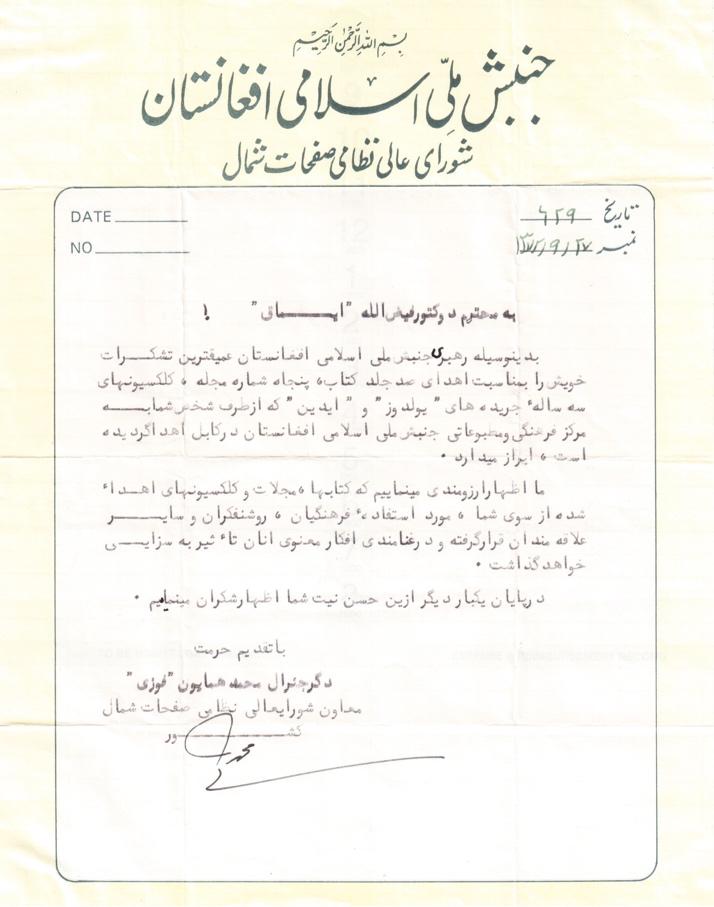 بسم الله الرحمن الرحیم
جنبش ملّی اسلامی افغانستان
شورای عالی نظامی صفحات شمال
DATE
تاریخ ۶۲۹
NO
نمبر ۱۳۷۲/۹/۲۷
به محترم دوکتور فیض الله "ایماق" !
بدینوسیله رهبری جنبش ملی اسلامی افغانستان عمیقترین تشکرات
خویش را بمناسبت اهدای صد جلد کتاب، پنجاه شماره مجله، کلکسیونهای
سه سالهٔ جریده های "یولدوز" و "ایدین" که از طرف شخص شما به
مرکز فرهنگی و مطبوعاتی جنبش ملی اسلامی افغانستان در کابل اهدا گردیده
است، ابراز میدارد.
ما اظهار ارزومندی مینماییم که کتابها، مجلات و کلکسیونهای اهداء
شده از سوی شما، مورد استفادهٔ فرهنگیان، روشنفکران و سایر
علاقه مندان قرار گرفته و در غنامندی افکار معنوی انان تاء ثیر به سزایی
خواهد گذاشت.
در پایان یکبار دیگر ازین حسن نیت شما اظهار شکران مینمایم.
با تقدیم حرمت
دگرجنرال محمد همایون "فوزی"
معاون شورایعالی نظامی صفحات شمال
کشور